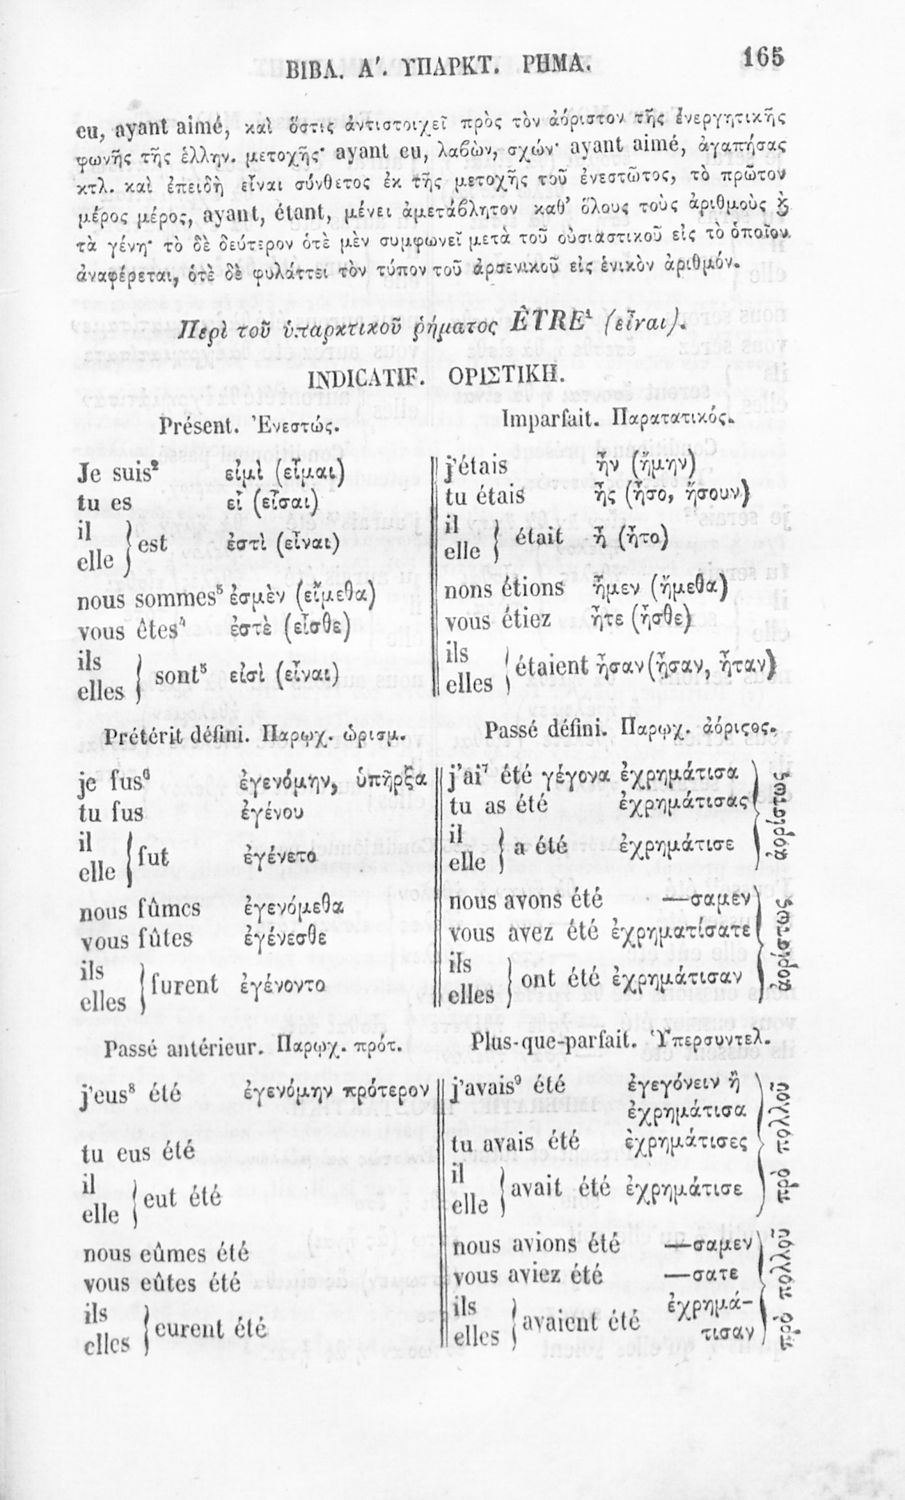 ΒΙΒΛ. Α'. ΥΠΑΡΚΤ. ΡΗΜΑ. 165
eu, ayant aimé, καὶ ὅστις ἀντιστοιχεῖ πρὸς τὸν ἀόριστον τῆς ἐνεργητικῆς
φωνῆς τῆς ἑλλην. μετοχῆς· ayant eu, λαβὼν, σχών· ayant aimé, ἀγαπήσας
κτλ. καὶ ἐπειδὴ εἶναι σύνθετος ἐκ τῆς μετοχῆς τοῦ ἐνεστῶτος, τὸ πρῶτον
μέρος μέρος, ayant, étant, μένει ἀμετάβλητον καθ' ὅλους τοὺς ἀριθμοὺς ϗ
τὰ γένη· τὸ δὲ δεύτερον ὁτὲ μὲν συμφωνεῖ μετὰ τοῦ οὐσιαστικοῦ εἰς τὸ ὁποῖον
ἀναφέρεται, ὁτὲ δὲ φυλάττει τὸν τύπον τοῦ ἀρσενικοῦ εἰς ἑνικὸν ἀριθμόν.
Περὶ τοῦ ὑπαρκτικοῦ ῥήματος ÊTRE¹ (εἶναι).
INDICATIF. ΟΡΙΣΤΙΚΗ.
Présent. Ἐνεστώς.
Je suis² εἰμὶ (εἶμαι)
tu es εἶ (εἶσαι)
il
elle } est ἐστὶ (εἶναι)
nous sommes⁵ ἐσμὲν (εἴμεθα)
vous êtes⁴ ἐστὲ (εἶσθε)
ils
elles } sont⁵ εἰσὶ (εἶναι)
Imparfait. Παρατατικός.
j'étais ἦν (ἤμην)
tu étais ἦς (ἦσο, ἤσουν)
il
elle } était ἦ (ἦτο)
nons étions ἦμεν (ἤμεθα)
vous étiez ἦτε (ἦσθε)
ils
elles } étaient ἦσαν (ἦσαν, ἦταν)
Prétérit défini. Παρῳχ. ὡρισμ.
je fus⁶ ἐγενόμην, ὑπῆρξα
tu fus ἐγένου
il
elle } fut ἐγένετο
nous fûmes ἐγενόμεθα
vous fûtes ἐγένεσθε
ils
elles } furent ἐγένοντο
Passé défini. Παρῳχ. ἀόριςος.
j'ai⁷ été γέγονα ἐχρημάτισα
tu as été ἐχρημάτισας
il
elle } a été ἐχρημάτισε
ἀορίστως
nous avons été —σαμεν
vous avez été ἐχρηματίσατε
ils
elles } ont été ἐχρημάτισαν
ἀορίστως
Passé antérieur. Παρῳχ. πρότ.
j'eus⁸ été ἐγενόμην πρότερον
tu eus été
il
elle } eut été
nous eûmes été
vous eûtes été
ils
elles } eurent été
Plus-que-parfait. Ὑπερσυντελ.
j'avais⁹ été ἐγεγόνειν ἢ
ἐχρημάτισα
tu avais été ἐχρημάτισες
il
elle } avait été ἐχρημάτισε
πρὸ πολλοῦ
nous avions été —σαμεν
vous aviez été —σατε
ils
elles } avaient été ἐχρημά-
τισαν
πρὸ πολλοῦ